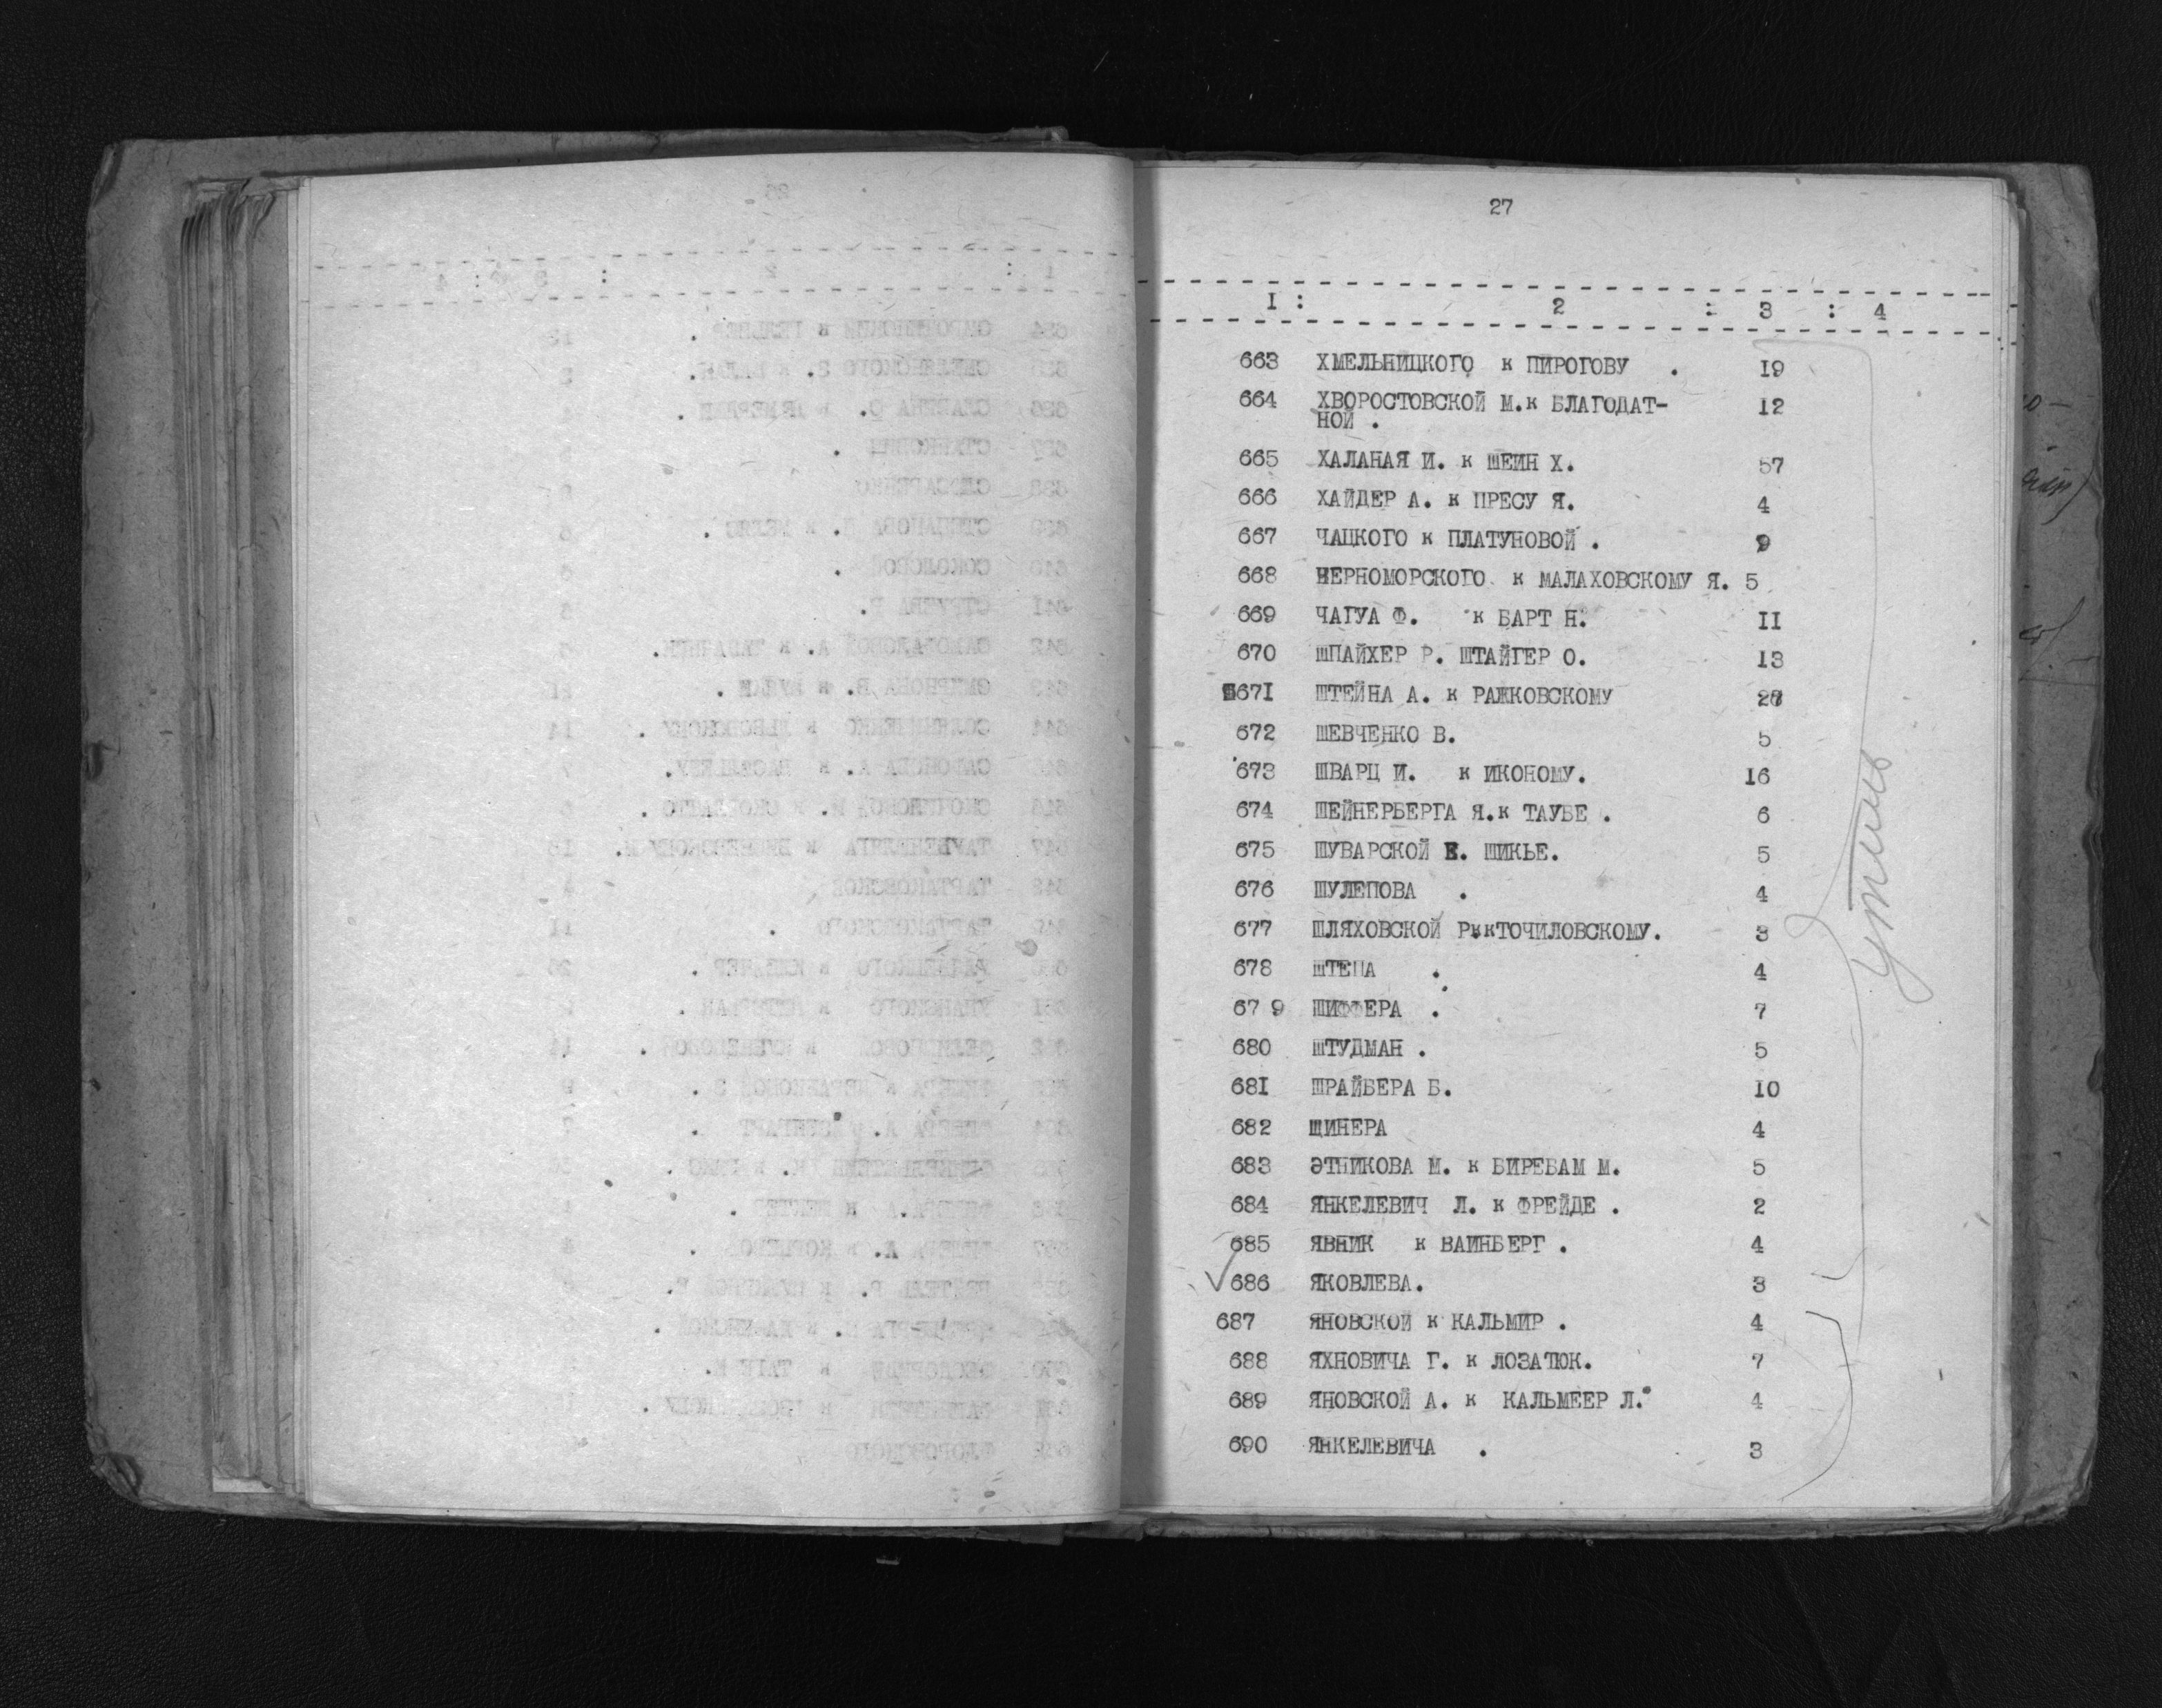 27
I : 2 : 3 : 4
663 ХМЕЛЬНИЦКОГО к ПИРОГОВУ . I9
664 ХВОРОСТОВСКОЙ М.к БЛАГОДАТ- I2
НОЙ .
665 ХАЛАНАЯ И. к ШЕИН Х. 57
666 ХАЙДЕР А. к ПРЕСУ Я. 4
667 ЧАЦКОГО к ПЛАТУНОВОЙ . 9
668 ЧЕРНОМОРСКОГО к МАЛАХОВСКОМУ Я. 5
669 ЧАГУА Ф. к БАРТ Н. II
670 ШПАЙХЕР Р. ШТАЙГЕР О. I3
67I ШТЕЙНА А. к РАЖКОВСКОМУ
672 ШЕВЧЕНКО В. 5
673 ШВАРЦ И. к ИКОНОМУ. I6
674 ШЕЙНЕРБЕРГА Я.к ТАУБЕ . 6
675 ШУВАРСКОЙ Е. ШИКЬЕ. 5
676 ШУЛЕПОВА . 4
677 ШЛЯХОВСКОЙ Р.кТОЧИЛОВСКОМУ. 3
678 ШТЕПА . 4
67 9 ШИФФЕРА . 7
680 ШТУДМАН . 5
68I ШРАЙБЕРА Б. I0
682 ЩИНЕРА 4
683 ЭТНИКОВА М. к БИРЕБАМ М. 5
684 ЯНКЕЛЕВИЧ Л. к ФРЕЙДЕ . 2
685 ЯВНИК к ВАИНБЕРГ . 4
686 ЯКОВЛЕВА. 3
687 ЯНОВСКОЙ к КАЛЬМИР . 4
688 ЯХНОВИЧА Г. к ЛОЗАТЮК. 7
689 ЯНОВСКОЙ А. к КАЛЬМЕЕР Л. 4
690 ЯНКЕЛЕВИЧА . 3
утиль